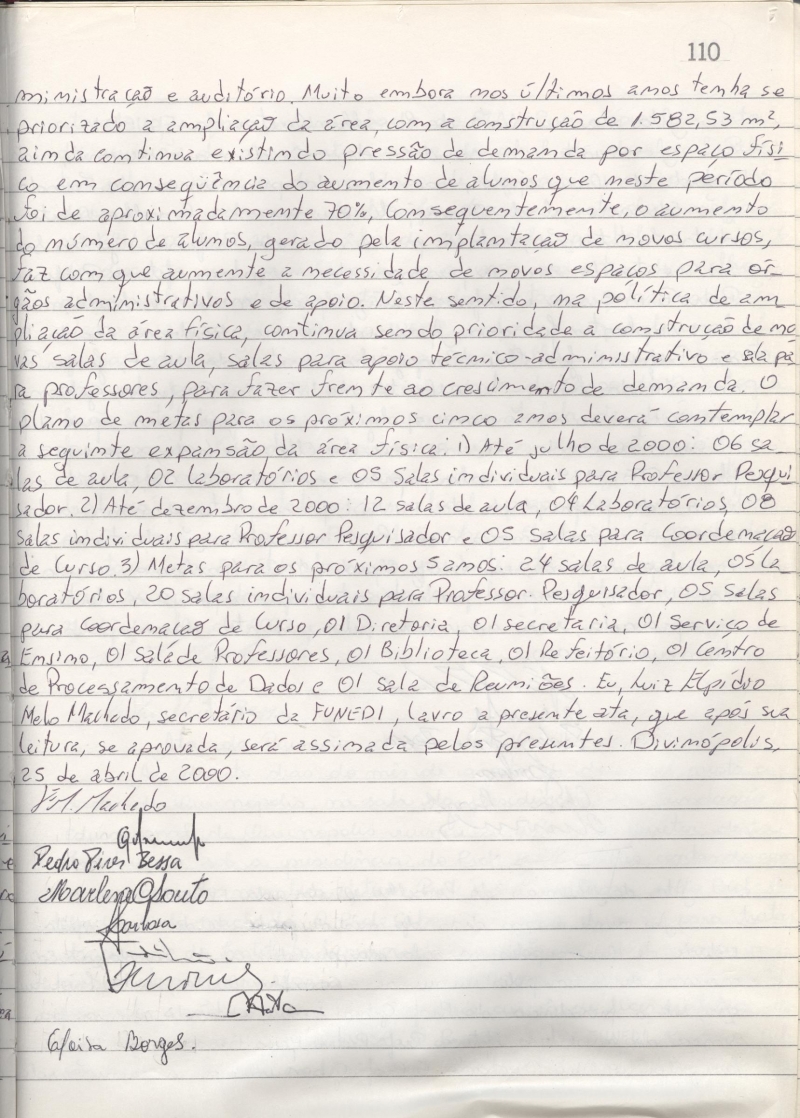 110
ministração e auditório. Muito embora nos últimos anos tenha se
priorizado a ampliação da área, com a construção de 1.582,53 m²,
ainda continua existindo pressão de demanda por espaço físi
co em conseqüência do aumento de alunos que neste período
foi de aproximadamente 70%, Consequentemente, o aumento
do número de alunos, gerado pela implantação de novos cursos,
faz com que aumente a necessidade de novos espaços para ór-
gãos administrativos e de apoio. Neste sentido, na política de am
pliação da área física, continua sendo prioridade a construção de no
vas salas de aula, salas para apoio técnico-administrativo e sala pa
ra professores, para fazer frente ao crescimento de demanda. O
plano de metas para os próximos cinco anos deverá contemplar
a seguinte expansão da área física: 1) Até julho de 2000: 06 sa_
las de aula, 02 Laboratórios e 05 Salas individuais para Professor Pesqui
sador. 2) Até dezembro de 2000: 12 salas de aula, 04 Laboratórios, 08
salas individuais para Professor Pesquisador e 05 salas para Coordenação
de Curso. 3) Metas para os próximos 5 anos: 24 salas de aula, 05 La_
boratórios, 20 salas individuais para Professor Pesquisador, 05 salas
para Coordenação de Curso, 01 Diretoria, 01 secretaria, 01 Serviço de
Ensino, 01 Sala de Professores, 01 Biblioteca, 01 Refeitório, 01 Centro
de Processamento de Dados e 01 sala de Reuniões. Eu, Luiz Elpídio
Melo Machado, secretário da FUNEDI, lavro a presente ata, que após sua
leitura, se aprovada, será assinada pelos presentes. Divinópolis,
25 de abril de 2000.
Machado
Pedro Pires Bessa
Marlene Souto
Barbosa
Eloisa Borges.